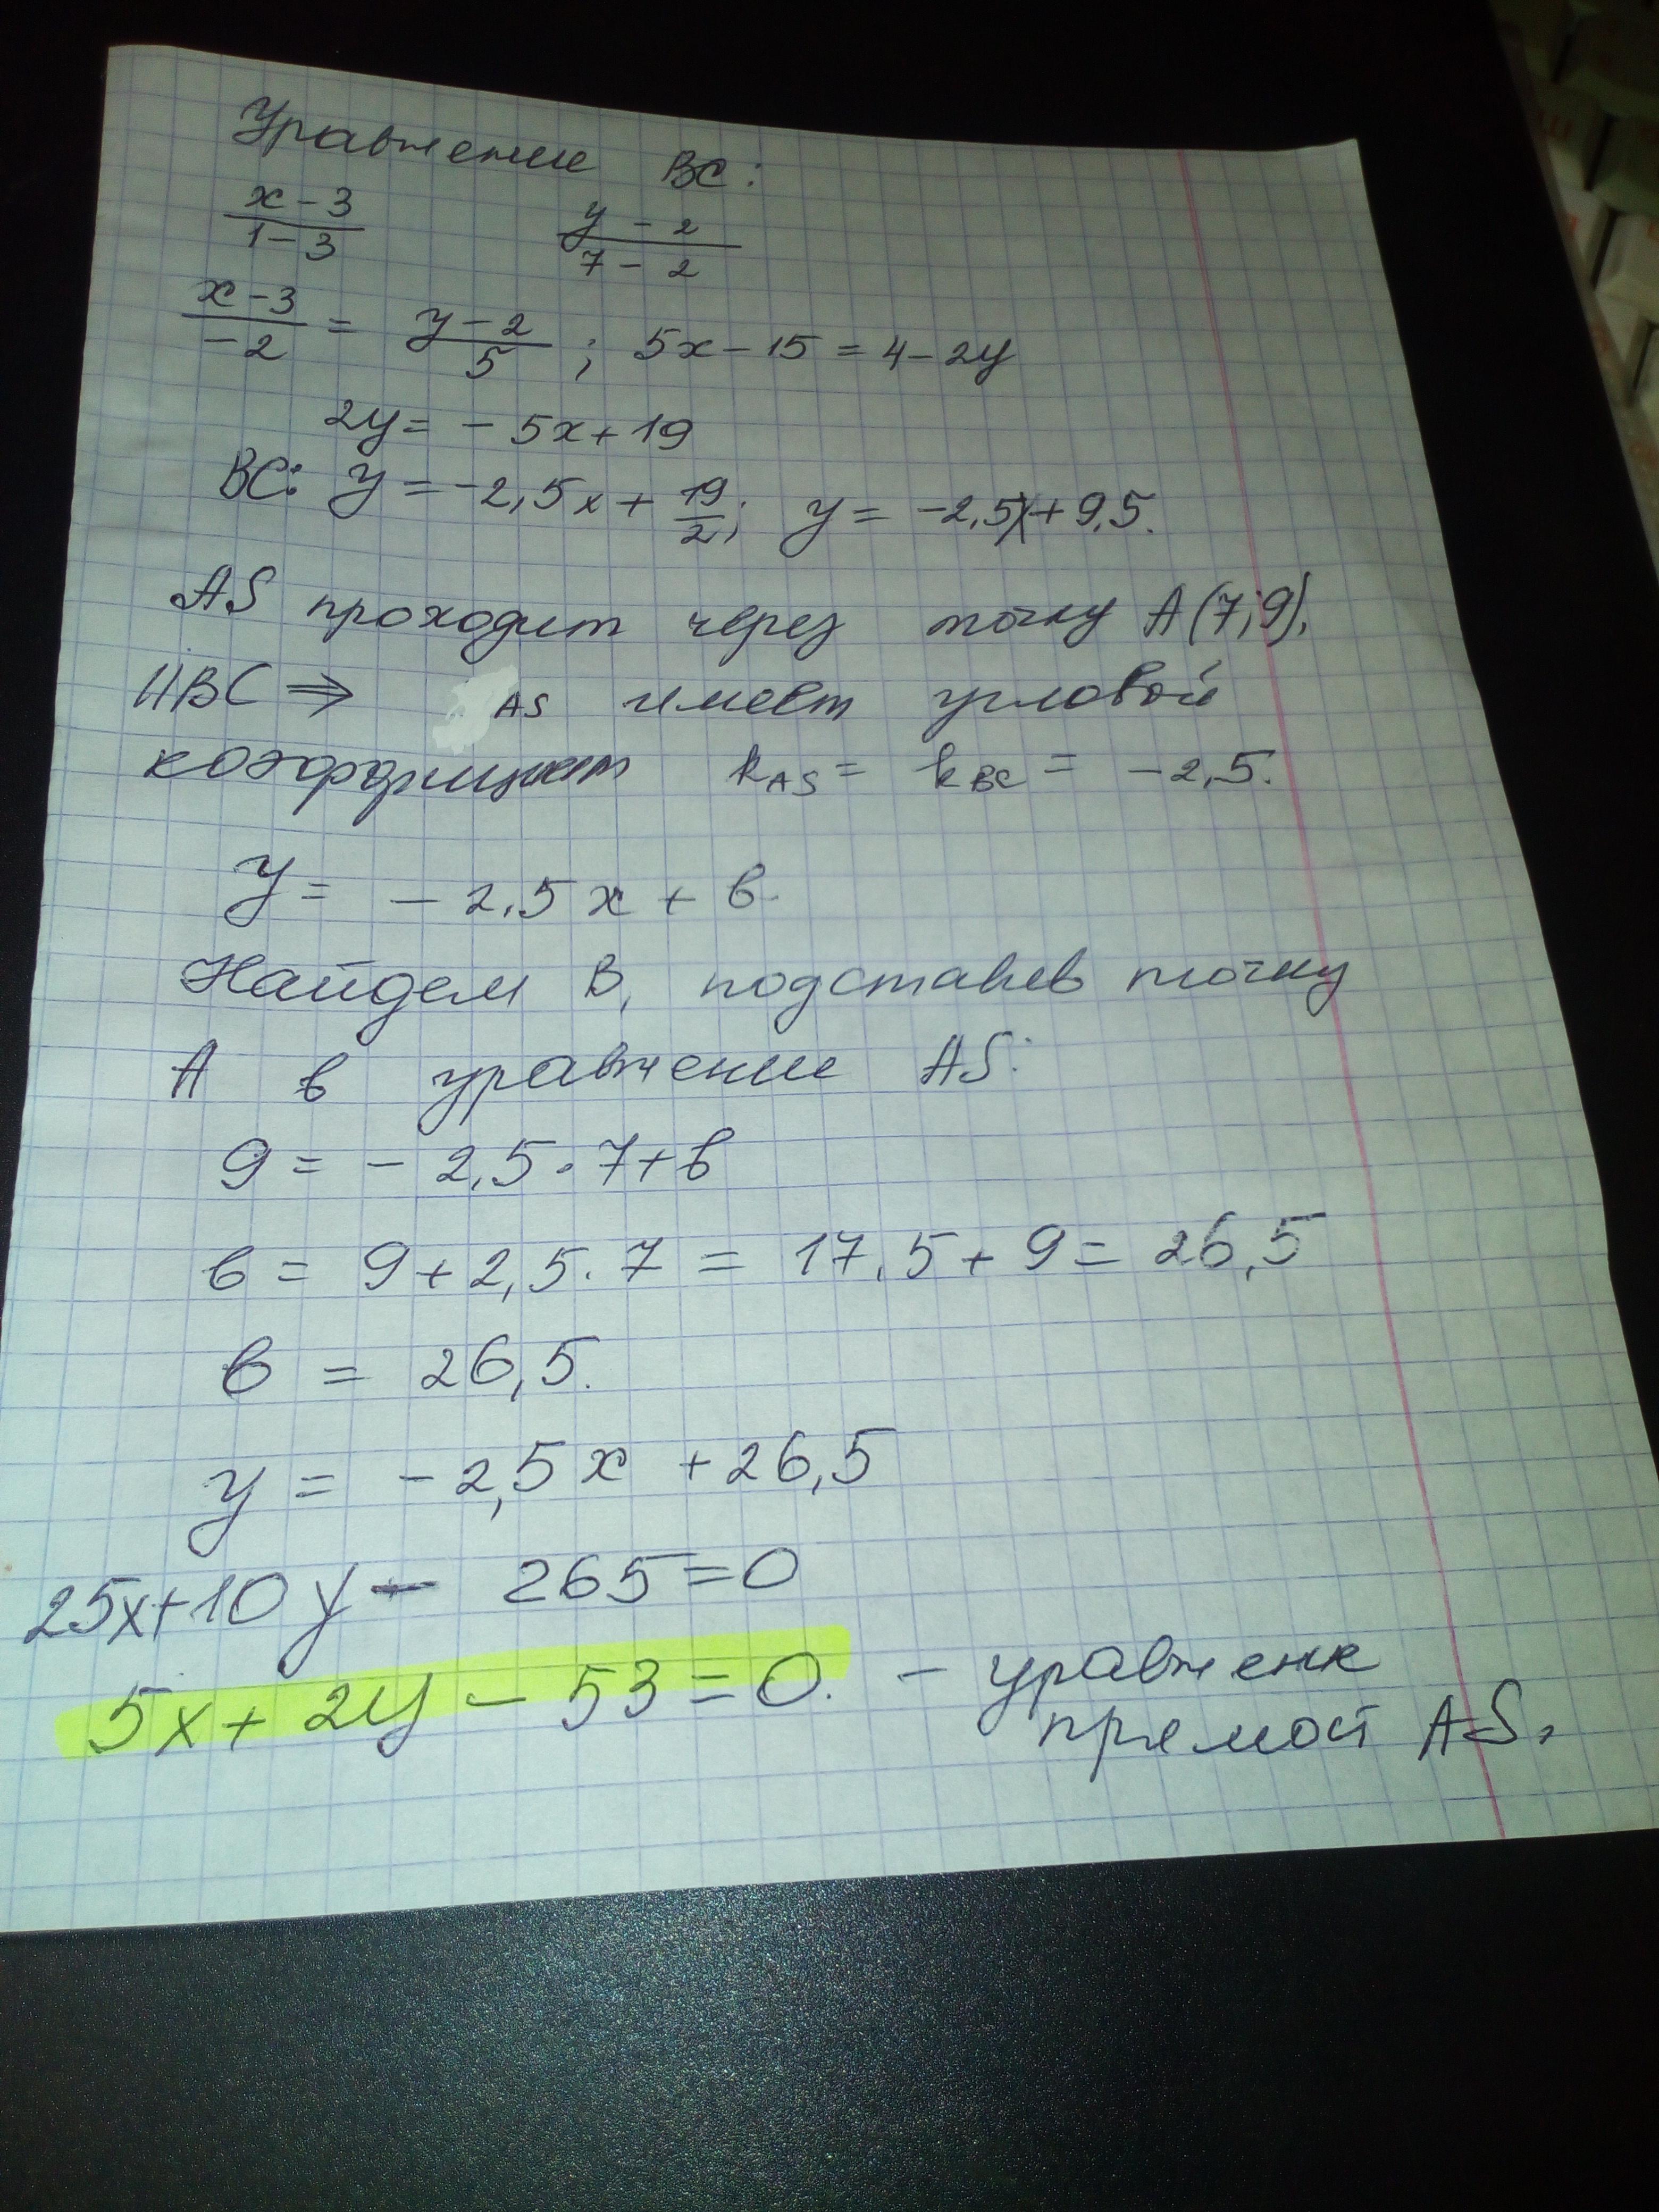 Уравнение BC:
x-3/1-3 y-2/7-2
x-3/-2 = y-2/5 ; 5x-15=4-2y
2y=-5x+19
BC: y=-2,5x+19/2; y=-2,5x+9,5.
AS проходит через точку A(7;9),
||BC⇒ AS имеет угловой
коэффициент kAS= kBC= -2,5.
y= -2,5x+в.
Найдем в, подставив точку
A в уравнение AS:
9=-2,5·7+в
в=9+2,5·7=17,5+9=26,5
в=26,5.
y=-2,5x+26,5
25x+10y-265=0
5x+2y-53=0. - уравнение
прямой AS.